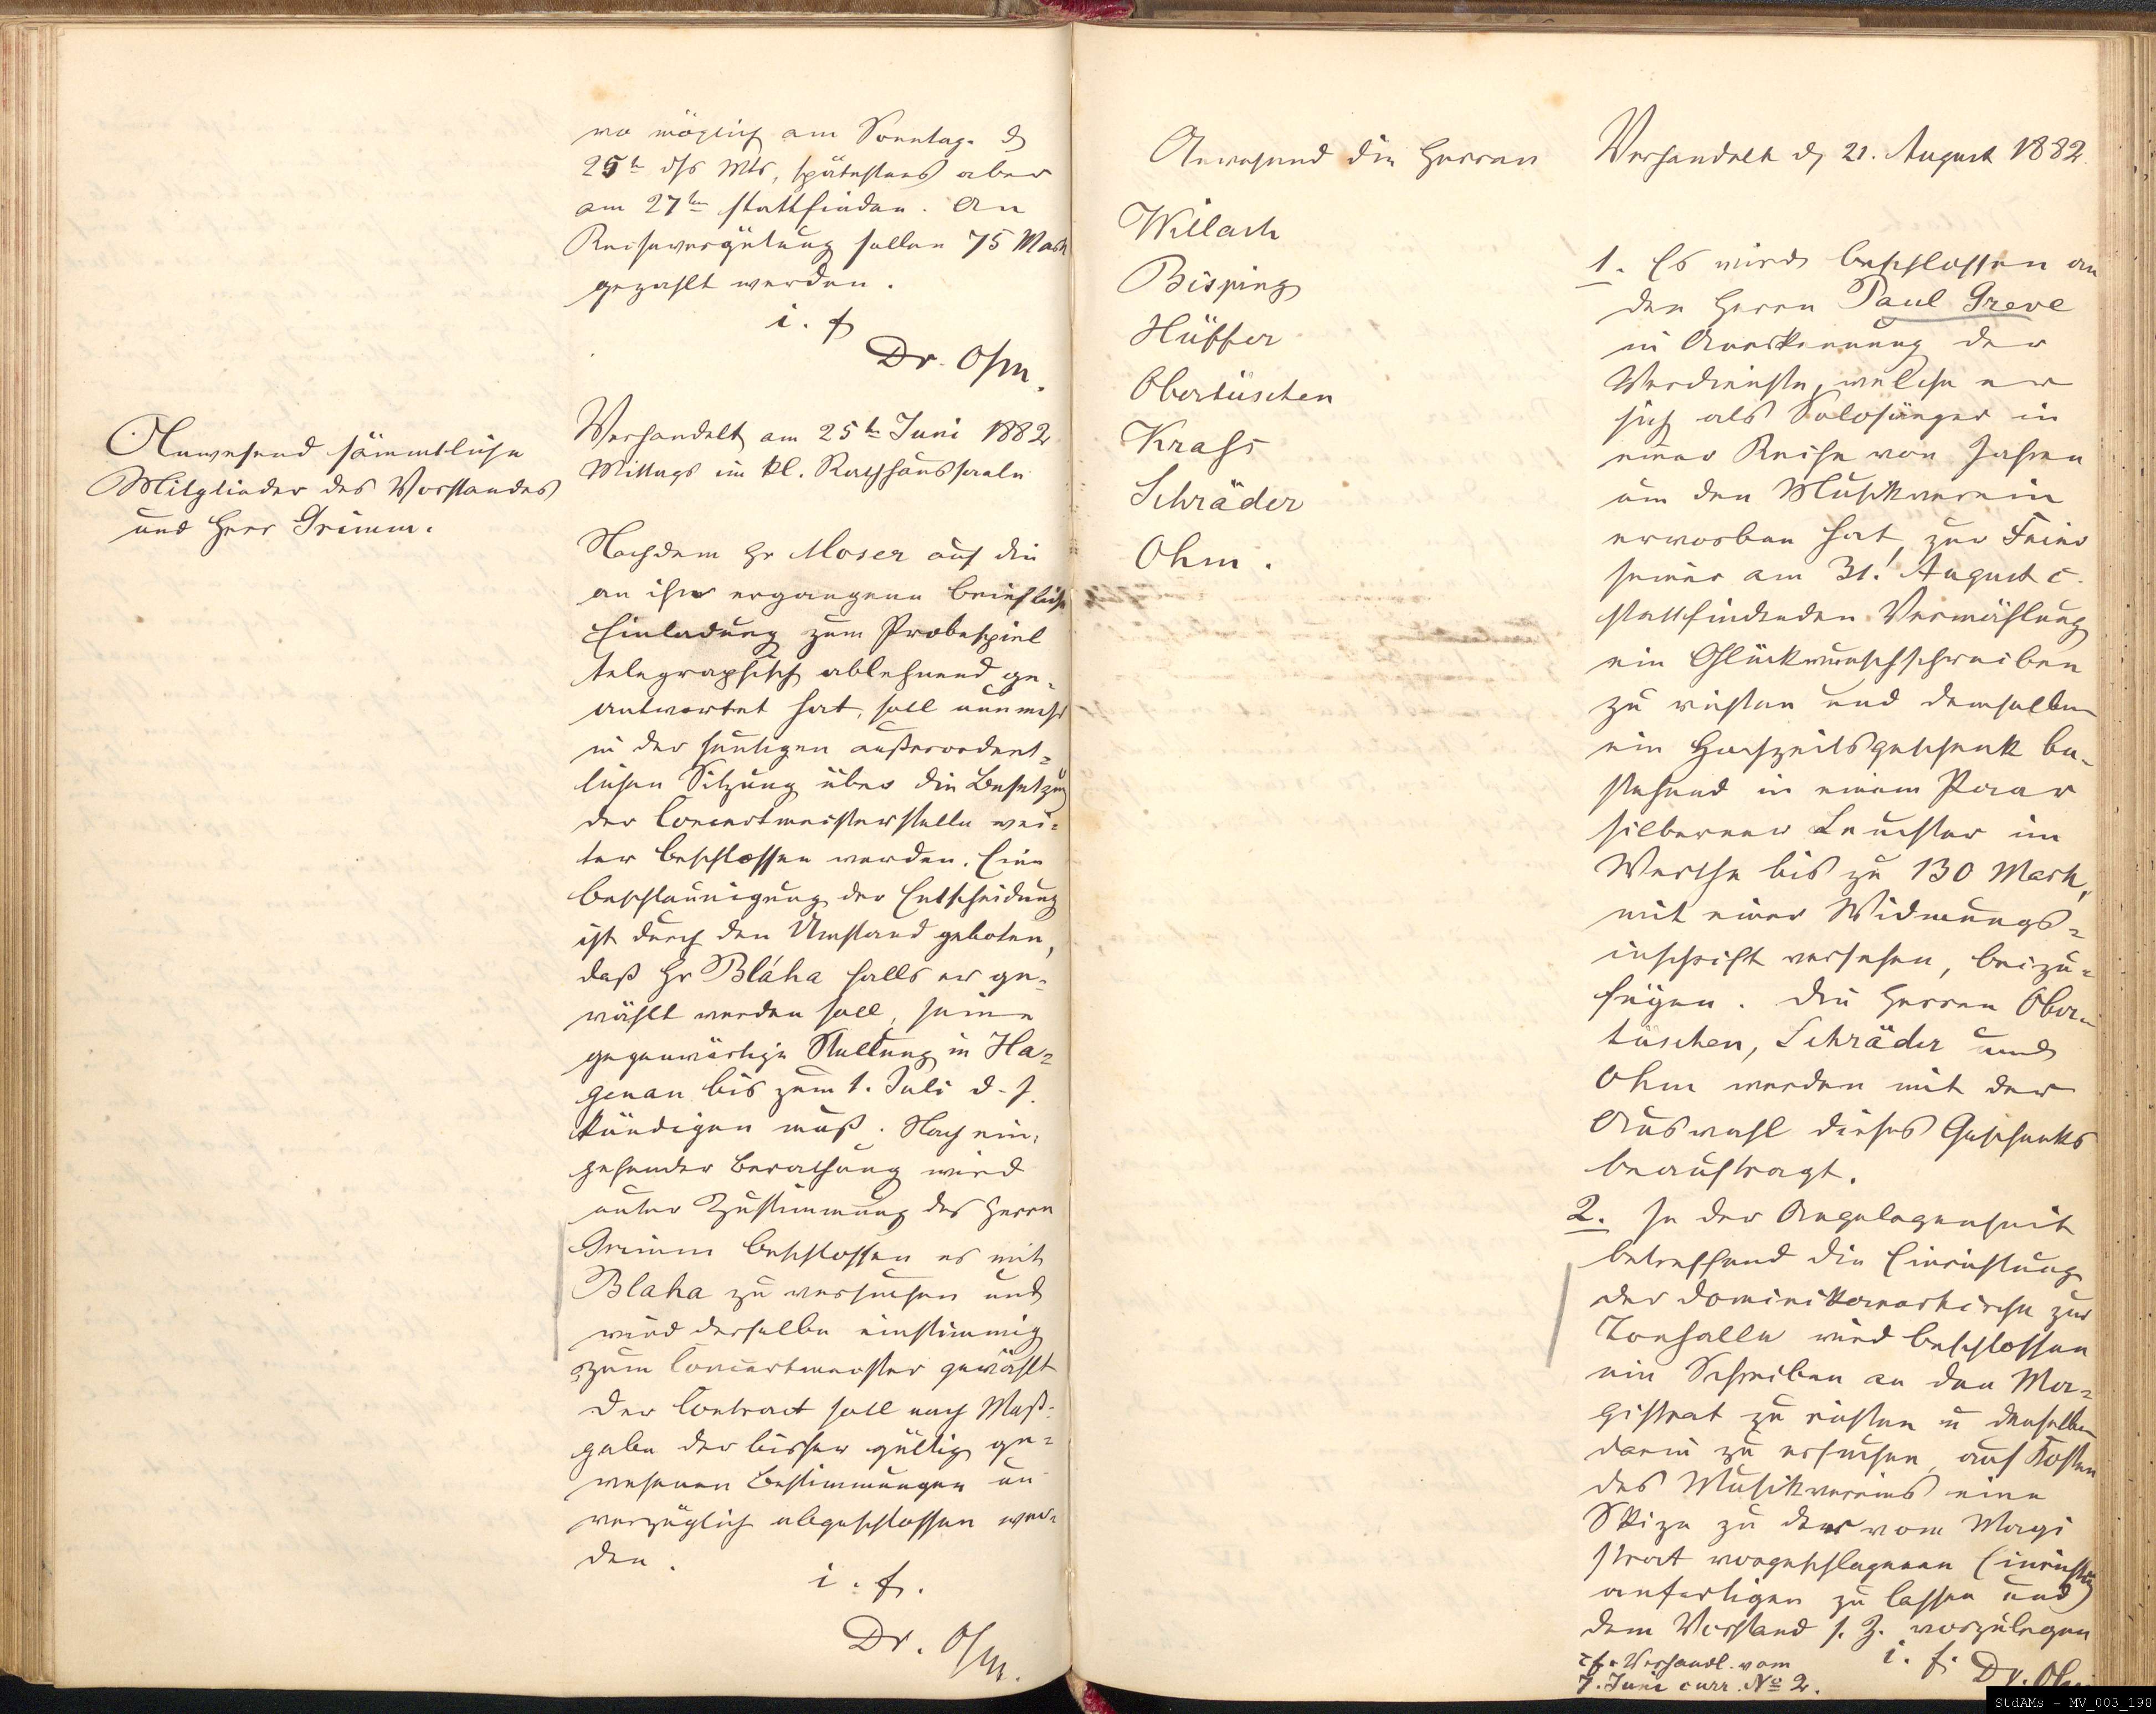 wo möglich am Sonntag d
25t. dss Mts, spätestens aber
am 27ten stattfinden. An
Reisevergütung sollen 75 Mark
gezahlt werden.
i. f
Dr. Ohm.
Anwesend sämmtliche
Mitglieder des Vorstandes
und Herr Grimm.
Verhandelt am 25t. Juni 1882
Mittags im kl. Rathhaussaale
Nachdem Hr Moser auf die
an ihn ergangene briefliche
Einladung zum Probespiel
telegraphisch ablehnend ge-
antwortet hat, soll nunmehr
in der heutigen außerordent-
lichen Sitzung über die Besetzung
der Concertmeisterstelle wei-
ter beschlossen werden. Eine
Beschleunigung der Entscheidung
ist durch den Umstand geboten,
daß Hr Bláha falls er ge-
wählt werden soll, seine
gegenwärtige Stellung in Ha-
genau bis zum 1. Juli d. J.
kündigen muß. Nach ein-
gehender Berathung wird
unter Zustimmung des Herrn
Grimm beschlossen es mit
Blaha zu versuchen und
wird derselbe einstimmig
zum Concertmeister gewählt
Der Contract soll nach Maß-
gabe der bisher gültig ge-
wesenen Bestimmungen un
verzüglich abgeschlossen wer-
den.
i. f.
Dr. Ohm.
Anwesend die Herren
Willach
Bisping
Hüffer
Obertüschen
Krass
Schräder
Ohm.
Verhandelt d. 21. August 1882.
1. Es wird beschlossen an
den Herrn Paul Greve
in Anerkennung der
Verdienste, welche er
sich als Solosänger in
einer Reihe von Jahren
um den Musikverein
erworben hat, zur Feier
seiner am 31. August c.
stattfindenden Vermählung
ein Glückwunschschreiben
zu richten und demselben
ein Hochzeitsgeschenk be-
stehend in einem Paar
silberner Leuchter im
Werthe bis zu 130 Mark,
mit einer Widmungs-
inschrift versehen, beizu-
fügen. Die Herren Ober-
tüschen, Schräder und
Ohm werden mit der
Auswahl dieses Geschenks
beauftragt.
2. In der Angelegenheit
betreffend die Einrichtung
der Dominikanerkirche zur
Tonhalle wird beschlossen
ein Schreiben an den Ma-
gistrat zu richten u denselben
darin zu ersuchen, auf Kosten
des Musikvereins eine
Skize zu der vom Magi
strat vorgeschlagenen Einrichtung
anfertigen zu lassen und
dem Vorstand s. Z. vorzulegen
i. f. Dr. Ohm
cf. Verhandl. vom
7. Juni curr. No 2.
StdAMs - MV_003_198